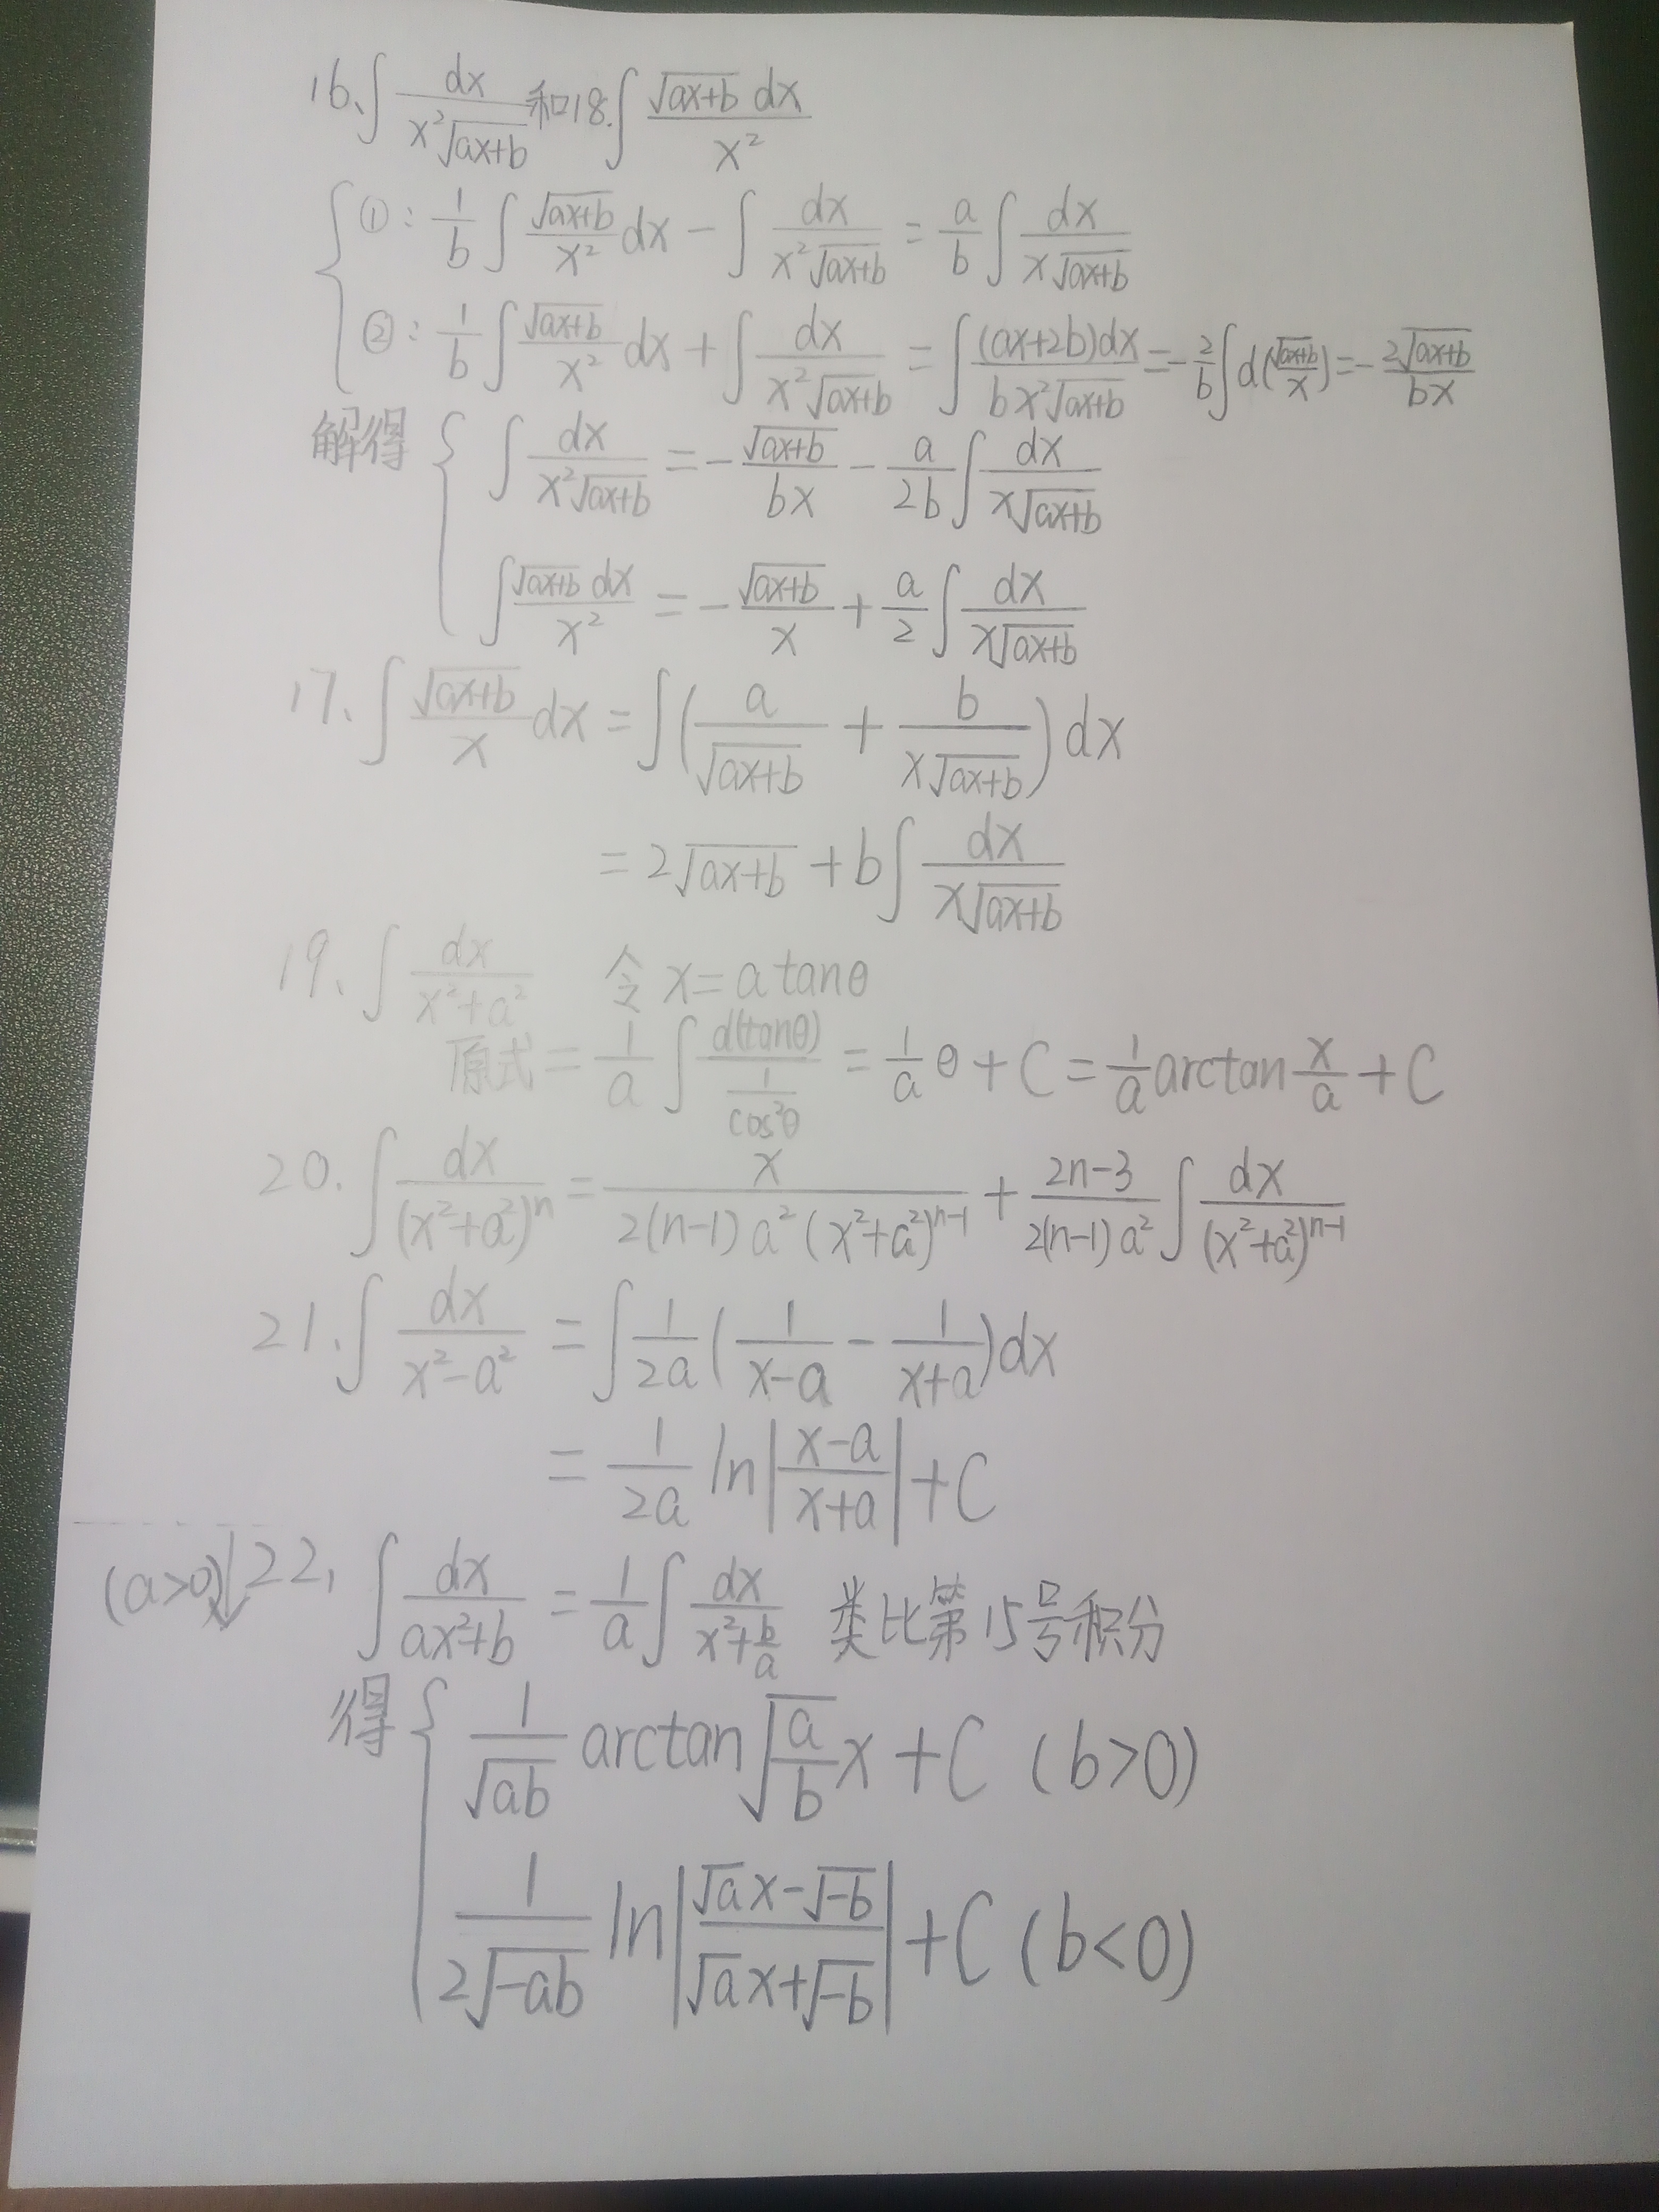 16、∫ dx/(x²√(ax+b)) 和18.∫ √(ax+b) dx/x²
①: 1/b ∫ √(ax+b)/x² dx − ∫ dx/(x²√(ax+b)) = a/b ∫ dx/(x√(ax+b))
②: 1/b ∫ √(ax+b)/x² dx + ∫ dx/(x²√(ax+b)) = ∫ (ax+2b)dx/(bx²√(ax+b)) = −2/b ∫ d(√(ax+b)/x) = −2√(ax+b)/(bx)
解得 { ∫ dx/(x²√(ax+b)) = −√(ax+b)/(bx) − a/(2b) ∫ dx/(x√(ax+b))
∫ √(ax+b) dx/x² = −√(ax+b)/x + a/2 ∫ dx/(x√(ax+b))
17、∫ √(ax+b)/x dx = ∫ (a/√(ax+b) + b/(x√(ax+b))) dx
= 2√(ax+b) + b∫ dx/(x√(ax+b))
19、∫ dx/(x²+a²) 令 x=a tanθ
原式 = 1/a ∫ d(tanθ)/(1/cos²θ) = 1/a θ + C = 1/a arctan x/a + C
20、∫ dx/(x²+a²)ⁿ = x/(2(n−1)a²(x²+a²)ⁿ⁻¹) + (2n−3)/(2(n−1)a²) ∫ dx/(x²+a²)ⁿ⁻¹
21、∫ dx/(x²−a²) = ∫ 1/(2a) (1/(x−a) − 1/(x+a))dx
= 1/(2a) ln|(x−a)/(x+a)| + C
(a>0)↓ 22、∫ dx/(ax²+b) = 1/a ∫ dx/(x²+b/a) 类比第15号积分
得 { 1/√(ab) arctan√(a/b) x + C (b>0)
1/(2√(−ab)) ln|(√a x−√(−b))/(√a x+√(−b))| + C (b<0)